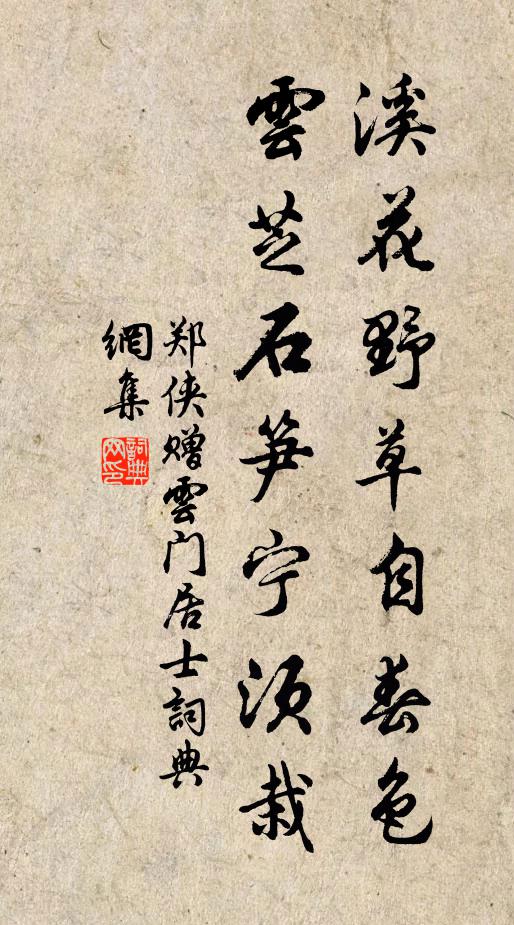 溪花野草自春色
雲芝石笋宁须栽
郑侠赠雲门居士詞典
網集
詞典
网印